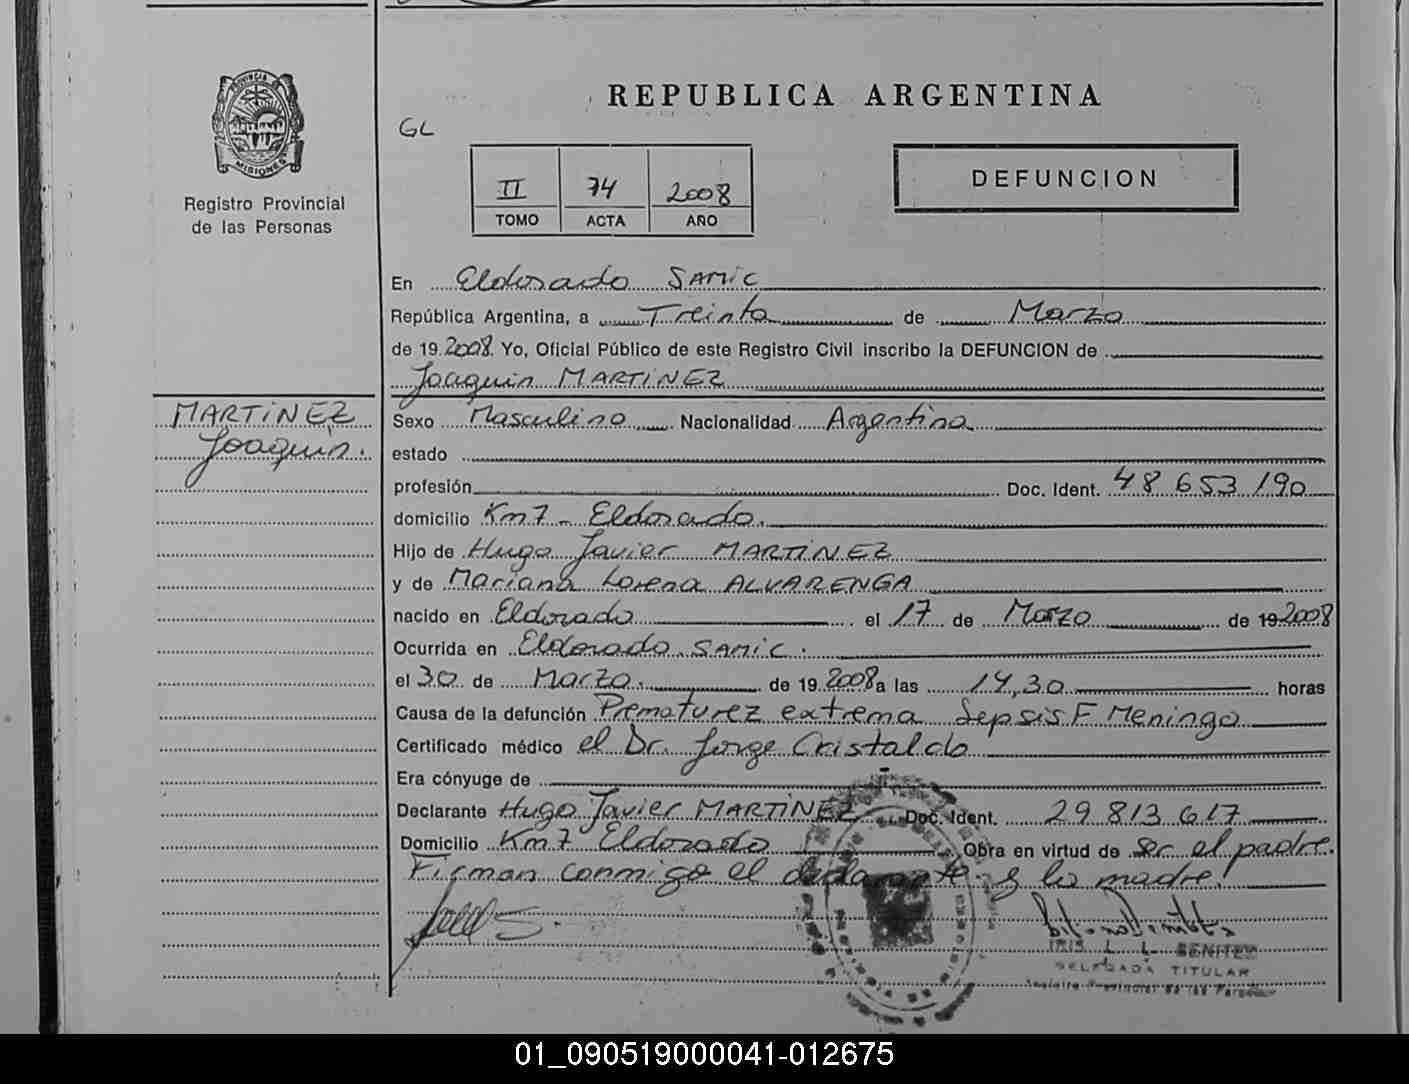 PROVINCIA DE
MISIONES
Registro Provincial
de las Personas
REPUBLICA ARGENTINA
GL
II 74 2008
TOMO ACTA AÑO
DEFUNCION
En Eldorado SAMIC
República Argentina, a Treinta de Marzo
de 19 2008. Yo, Oficial Público de este Registro Civil inscribo la DEFUNCION de
Joaquin MARTINEZ
MARTINEZ
Joaquin.
Sexo Masculino Nacionalidad Argentina
estado
profesión Doc. Ident. 48 653 190
domicilio Km 7 - Eldorado.
Hijo de Hugo Javier MARTINEZ
y de Mariana Lorena ALVARENGA
nacido en Eldorado el 17 de Marzo de 19 2008
Ocurrida en Eldorado SAMIC.
el 30 de Marzo. de 19 2008 a las 14,30 horas
Causa de la defunción Prematurez extrema Sepsis F Meningo
Certificado médico el Dr. Jorge Cristaldo
Era cónyuge de
Declarante Hugo Javier MARTINEZ Doc. Ident. 29 813 617
Domicilio Km 7 Eldorado Obra en virtud de ser el padre.
Firman conmigo el declarante y la madre!
IRIS L. L. BENITEZ
DELEGADA TITULAR
Registro Provincial de las Personas
01_090519000041-012675